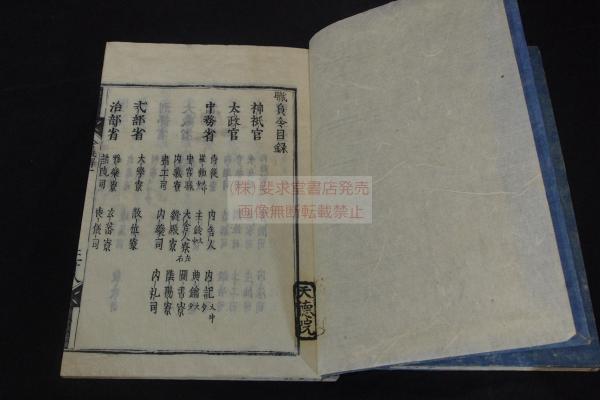 職員令目録
神祇官
太政官
中務省
侍従 内舎人 内記大中
監物 主鈴 典鑰
中宮職 大舎人寮左右 圖書寮
内藏寮 縫殿寮 陰陽寮
畫工司 内藥司 内礼司
式部省
大學寮 散位寮
治部省
雅樂寮 玄蕃寮
諸陵司 喪儀司
天德院
(株)斐求堂書店発売
画像無断転載禁止